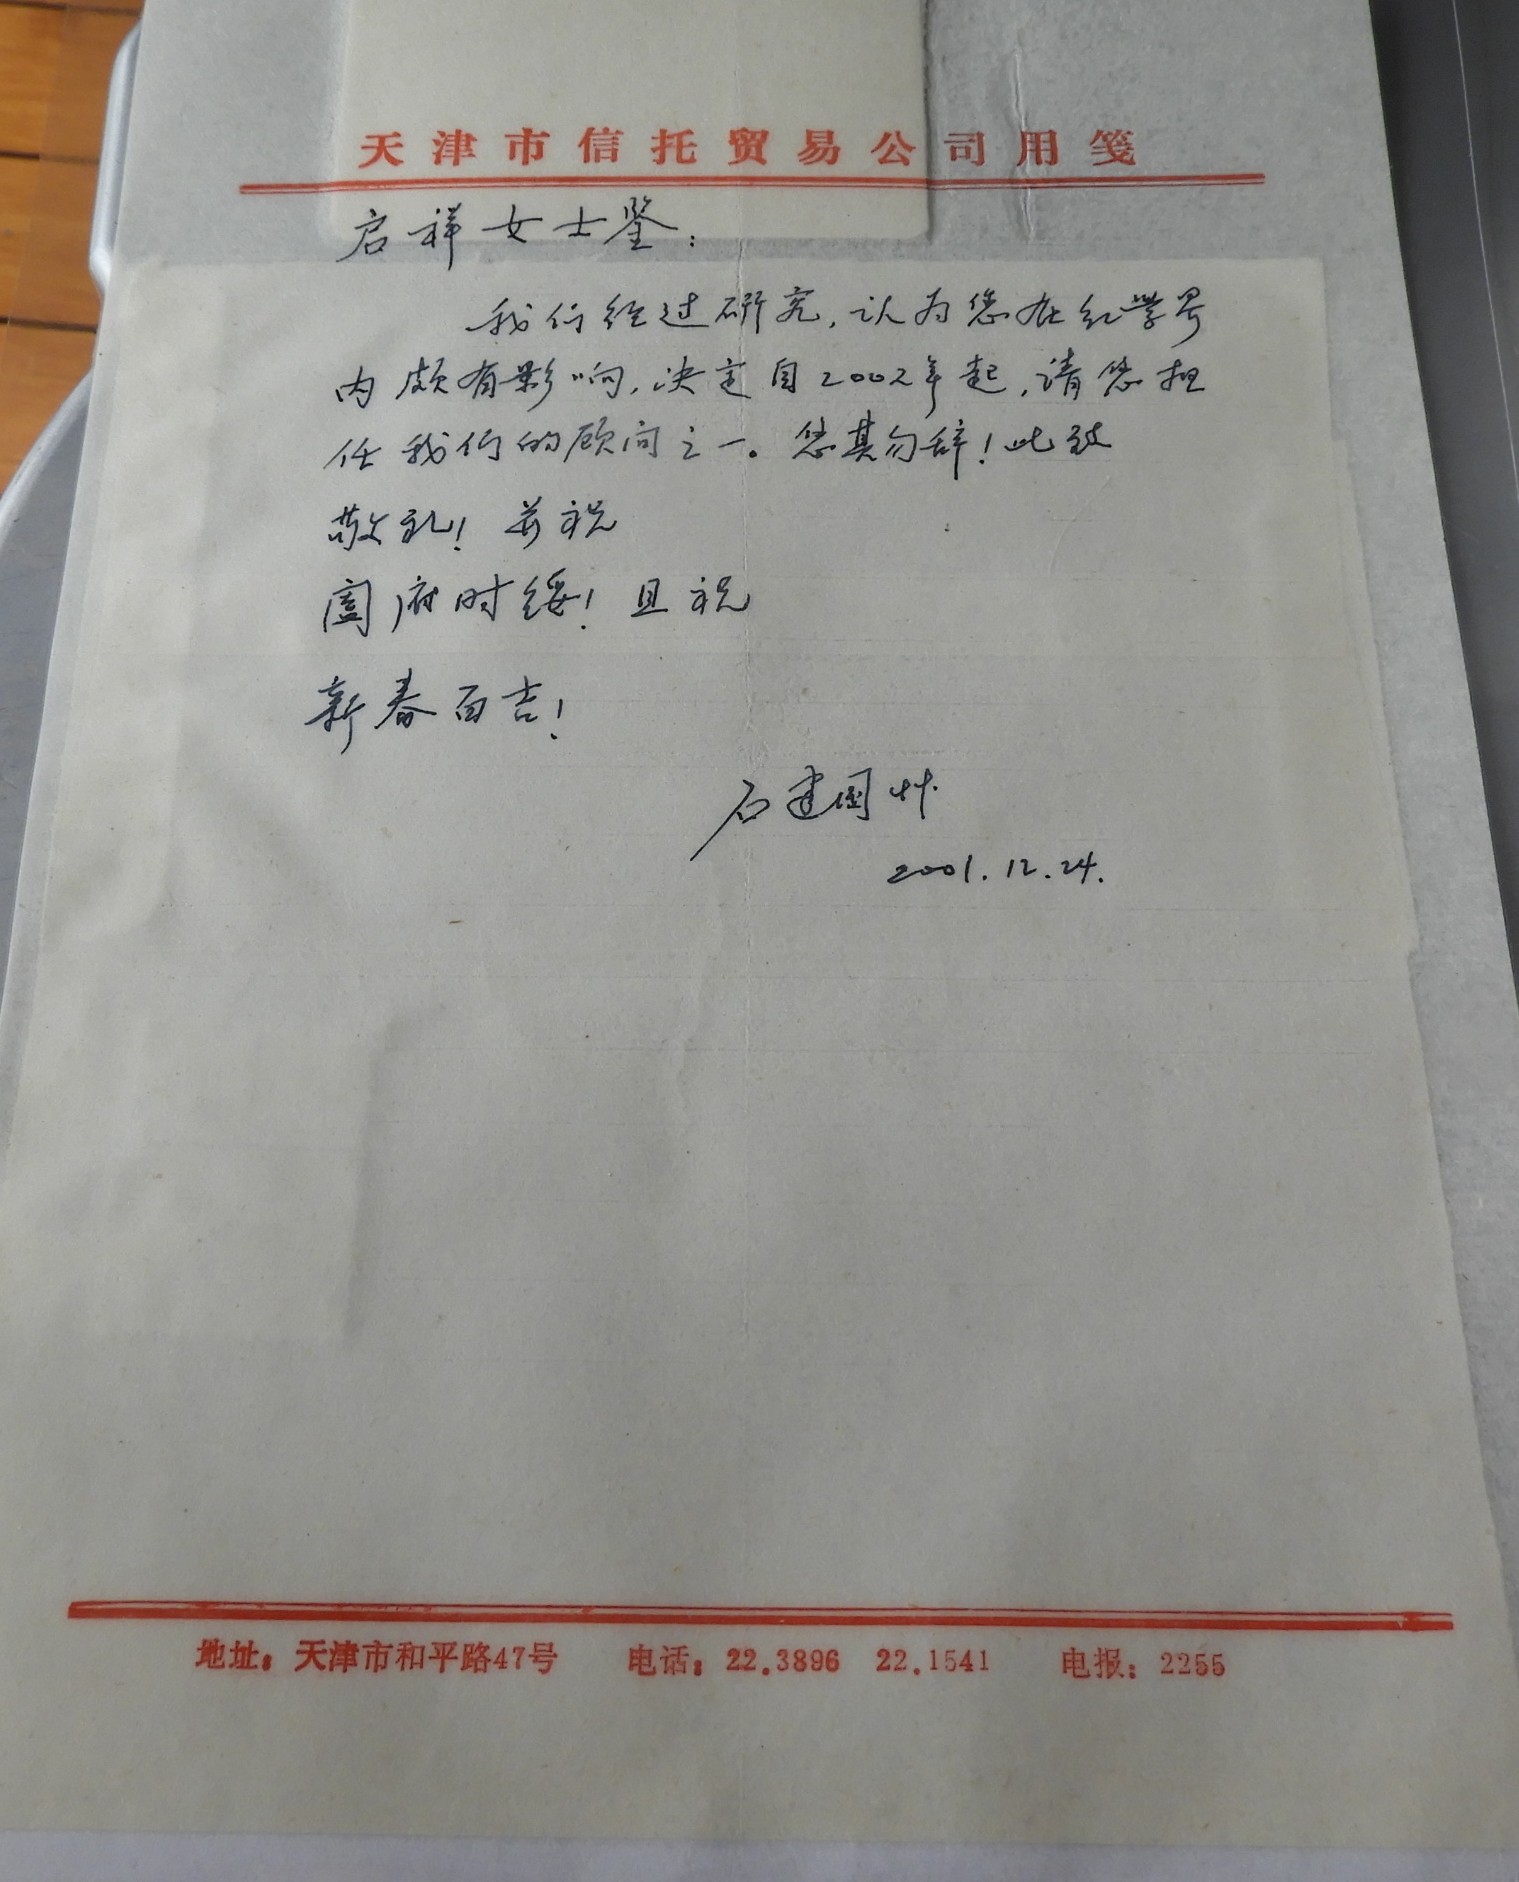 天津市信托贸易公司用笺
启祥女士鉴:
我们经过研究,认为您在红学界
内颇有影响,决定自2002年起,请您担
任我们的顾问之一。您其勿辞!此致
敬礼!并祝
阖府时绥!且祝
新春百吉!
石建国
2001.12.24.
地址:天津市和平路47号 电话:22.3896 22.1541 电报:2255